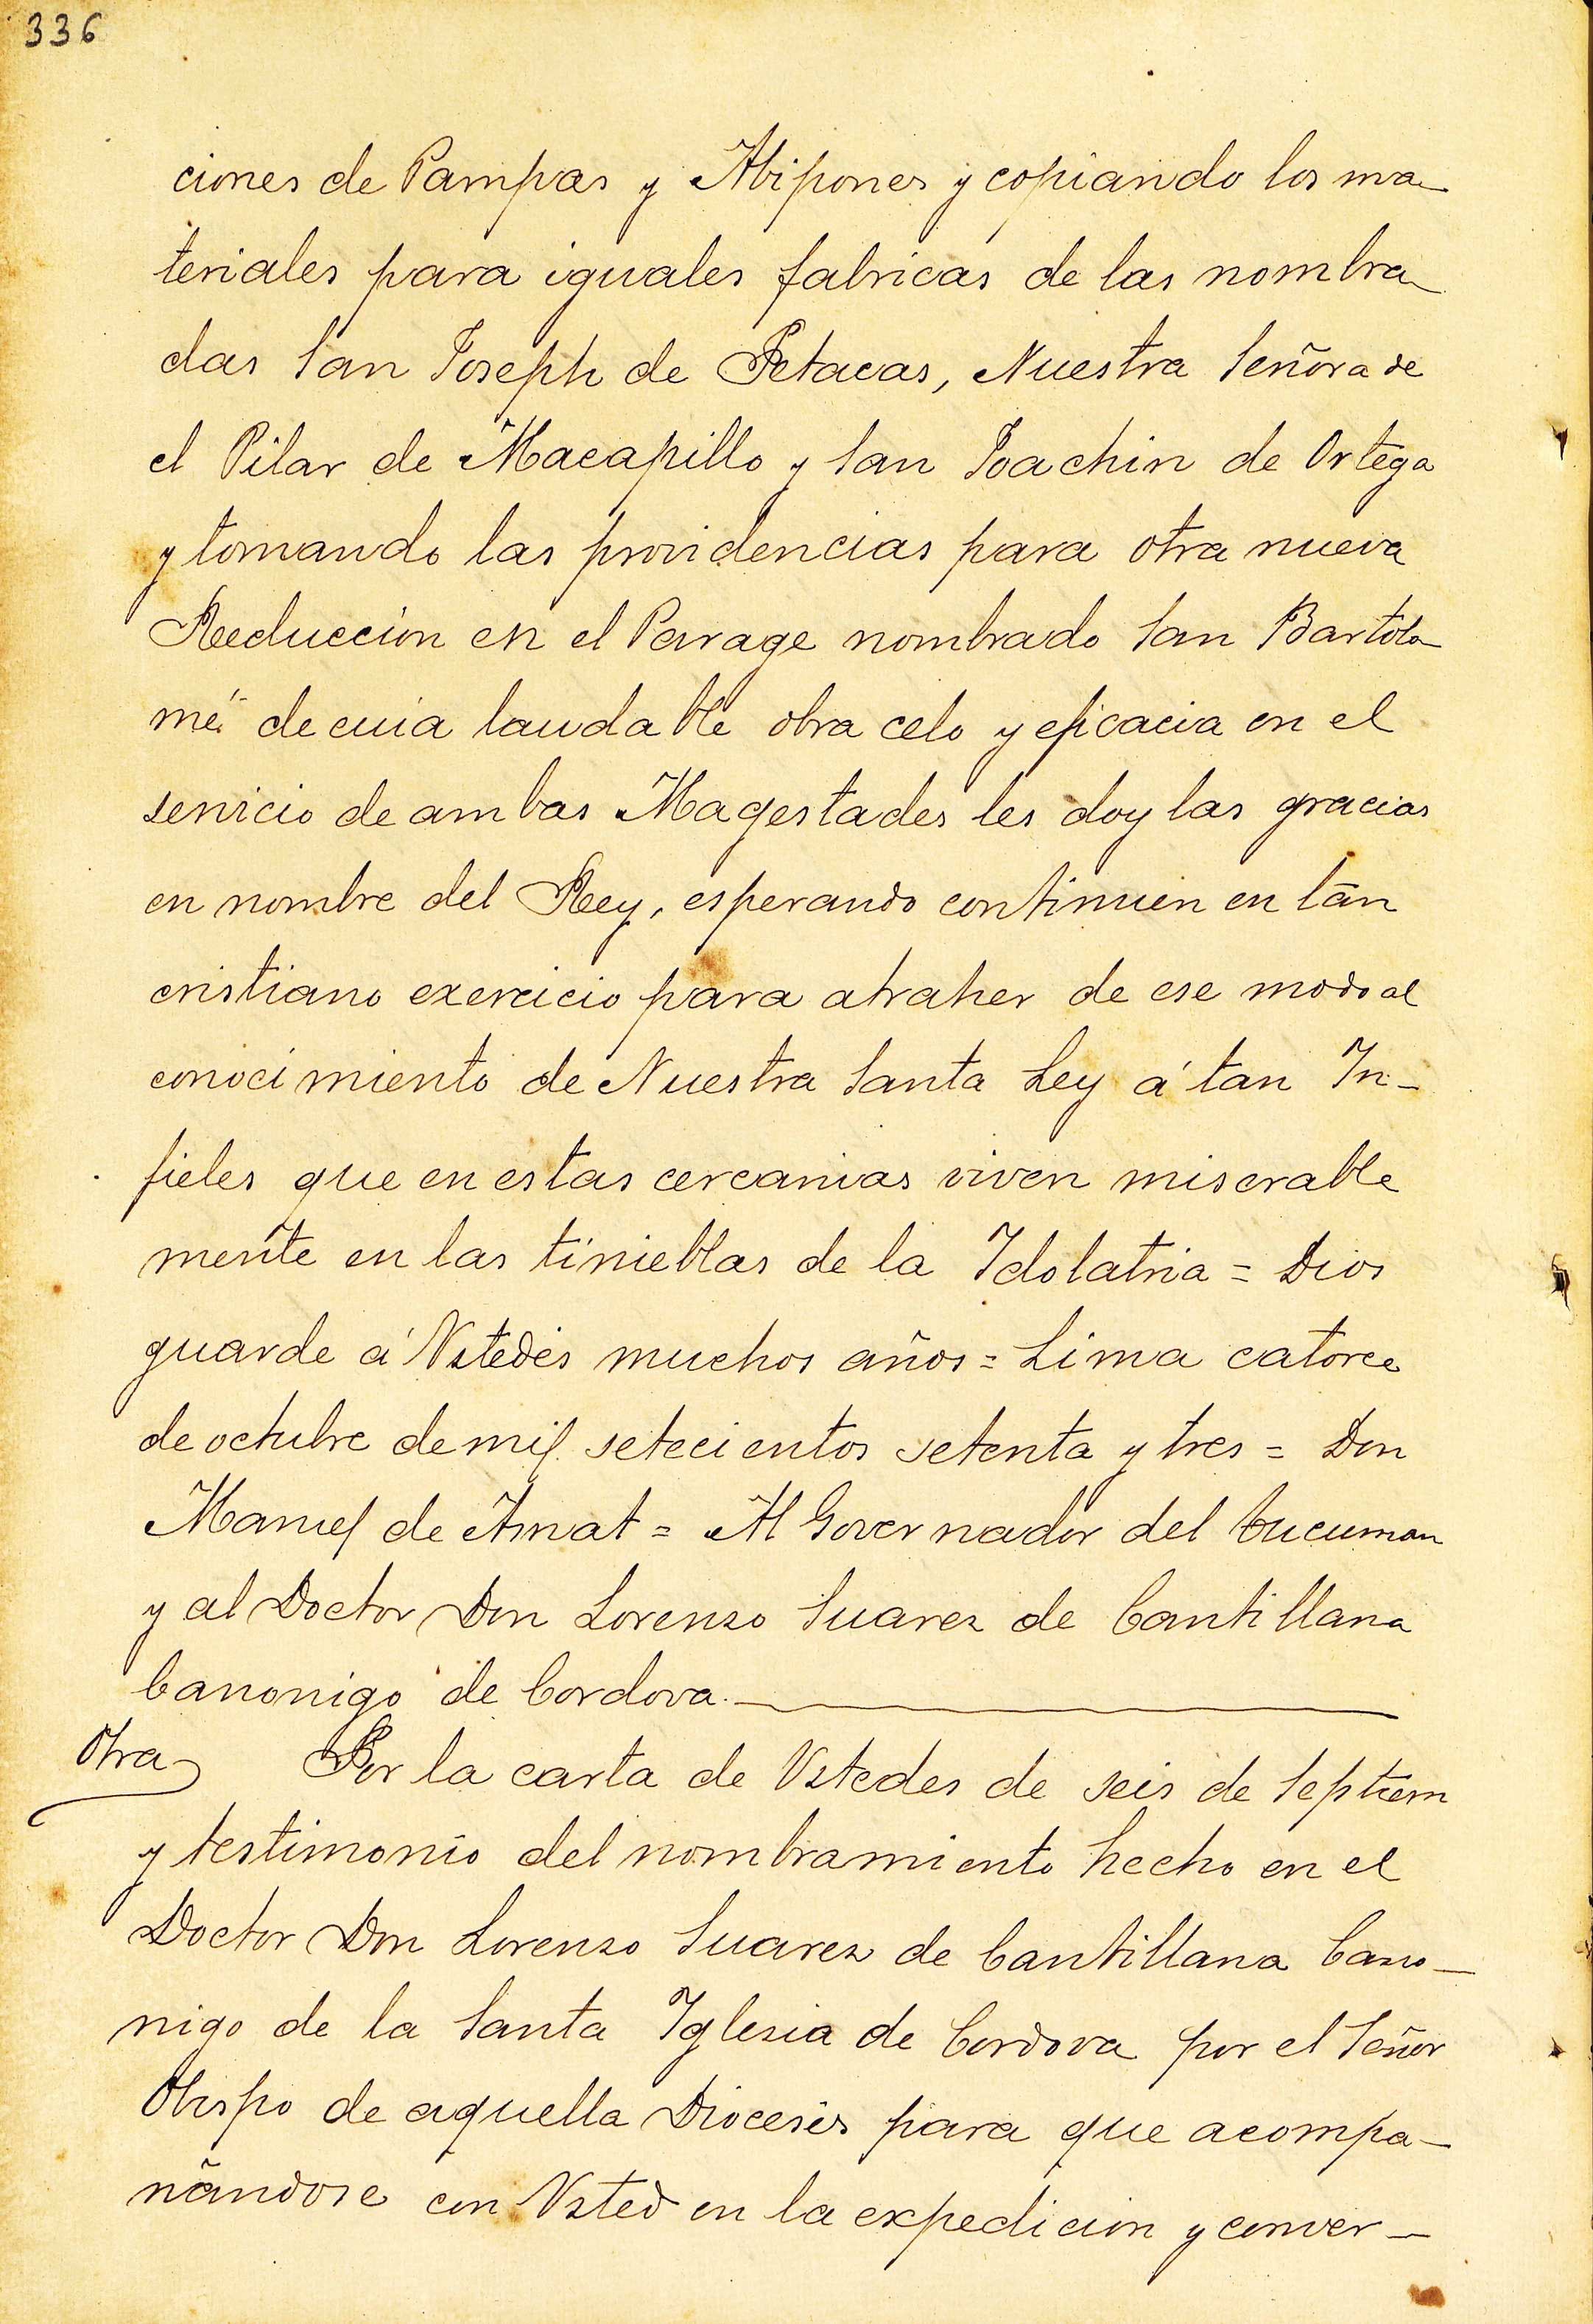 336
ciones de Pampas y Abipones y copiando los ma-
teriales para iguales fabricas de las nombra-
das San Joseph de Petacas, Nuestra Señora de
el Pilar de Macapillo y San Joachin de Ortega
y tomando las providencias para otra nueva
Reduccion en el Parage nombrado San Bartolo-
mé de cuia laudable obra celo y eficacia en el
servicio de ambas Magestades les doy las gracias
en nombre del Rey, esperando continuen en tan
cristiano exercicio para atraher de ese modo al
conocimiento de Nuestra Santa Ley á tan In-
fieles que en estas cercanias viven miserable
mente en las tinieblas de la Idolatria = Dios
guarde á Vstedes muchos años = Lima catorce
de octubre de mil setecientos setenta y tres = Don
Manuel de Amat = Al Governador del Tucuman
y al Doctor Don Lorenzo Suarez de Cantillana
Canonigo de Cordova.
Otra Por la carta de Vstedes de seis de Septiem
y testimonio del nombramiento hecho en el
Doctor Don Lorenzo Suarez de Cantillana Cano-
nigo de la Santa Iglesia de Cordova por el Señor
Obispo de aquella Diocesis para que acompa-
ñandose con Vsted en la expedicion y conver-